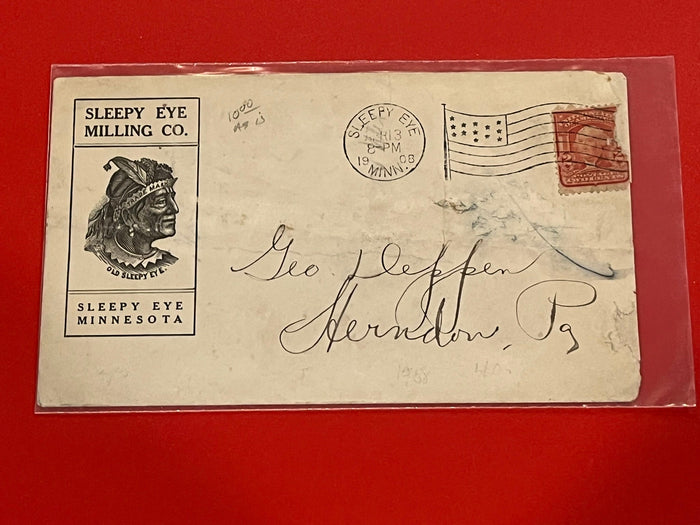 SLEEPY EYE
MILLING CO.
TRADE MARK
OLD SLEEPY EYE.
SLEEPY EYE
MINNESOTA
1000
As is
SLEEPY EYE
13
8-PM
1908
MINN.
2
TWO CENTS
Geo. Deppen
Herndon, Pa
1908